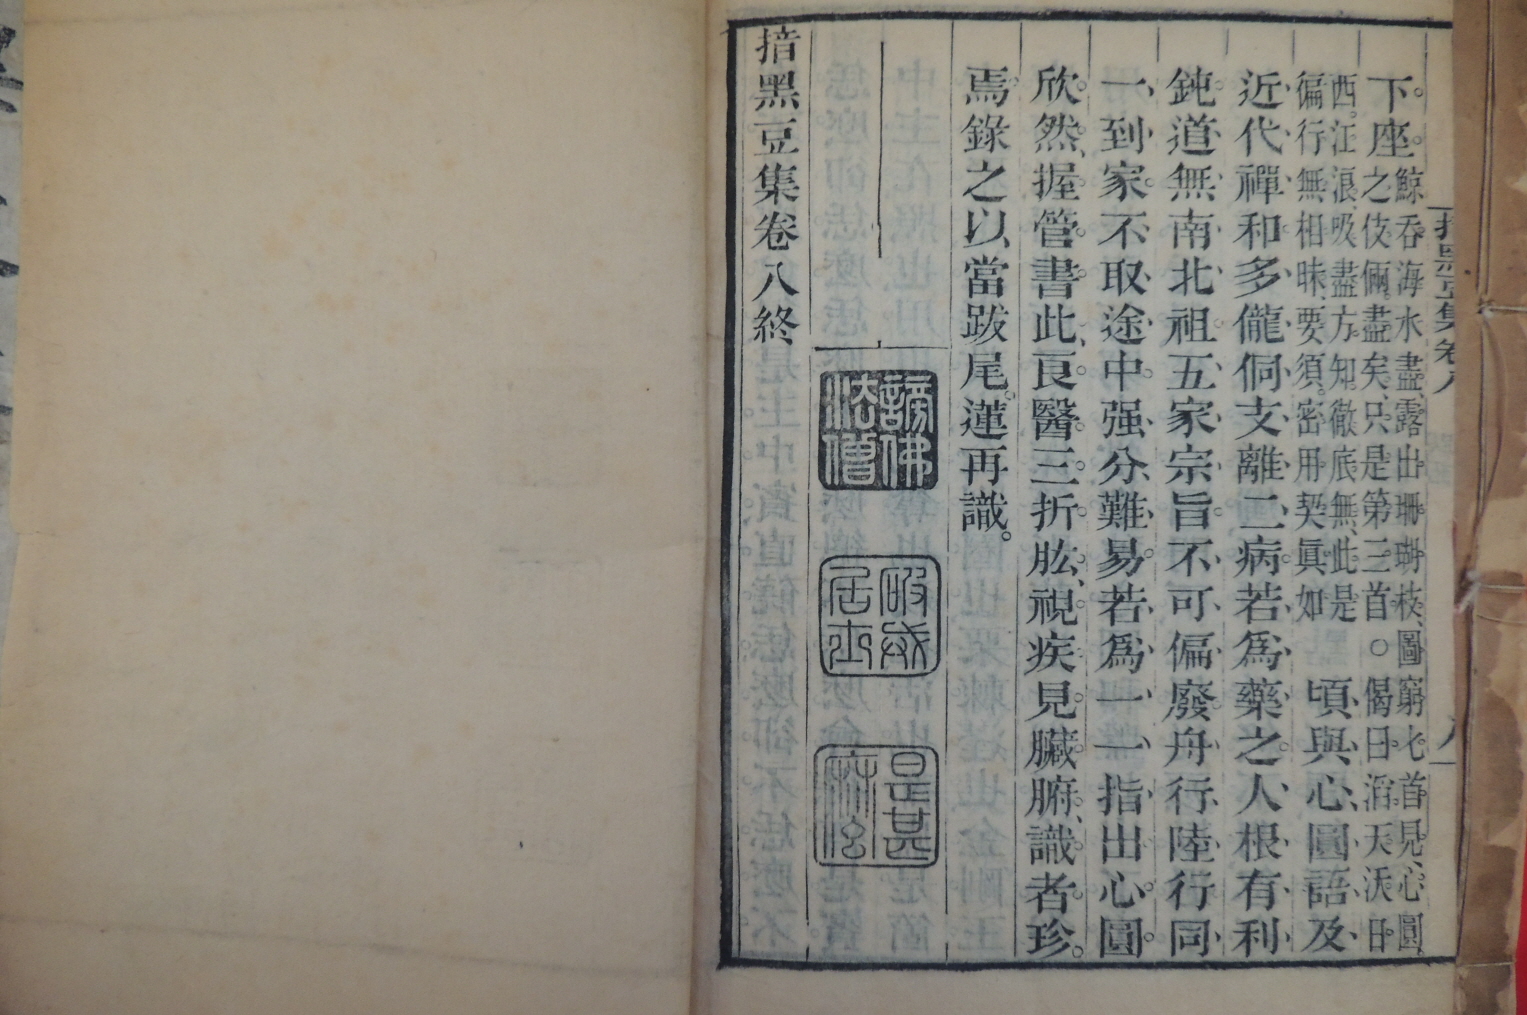 下座。鯨吞海水盡、露出珊瑚枝、圖窮匕首見、心圓
之伎倆。盡矣、只是第三首。○偈曰。滔天沃日。
西。江浪、吸盡方知徹底無、此是
偏行無相昧、要須。密用契眞如 頃與心圓語及
近代禪和多儱侗支離二病若爲藥之人根有利
鈍道無南北祖五家宗旨不可偏廢舟行陸行同
一到家不取途中强分難易若爲一一指出心圓
欣然握管書此良醫三折肱視疾見臟腑識者珍
焉錄之以當跋尾蓮再識
謗佛法僧
居士
是甚麻
揞黑豆集卷八終
揞黑豆集卷八
八